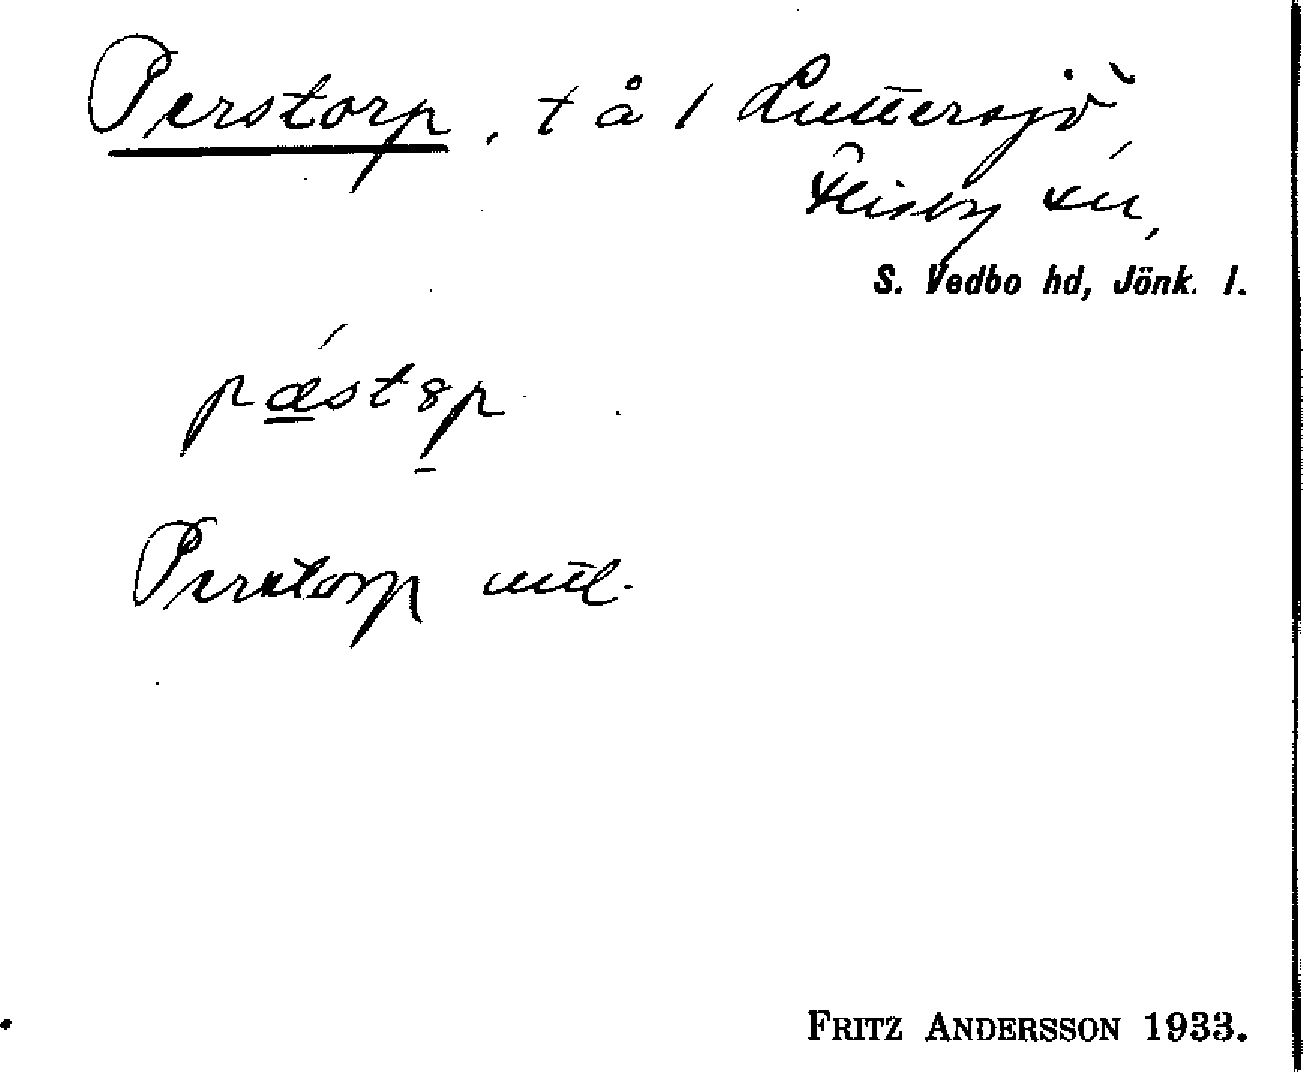 Perstorp, t å 1 Luttersjö,
Flisby sn,
S. Vedbo hd, Jönk. l.
pæstɞp
Perstorp
FRITZ ANDERSSON 1933.